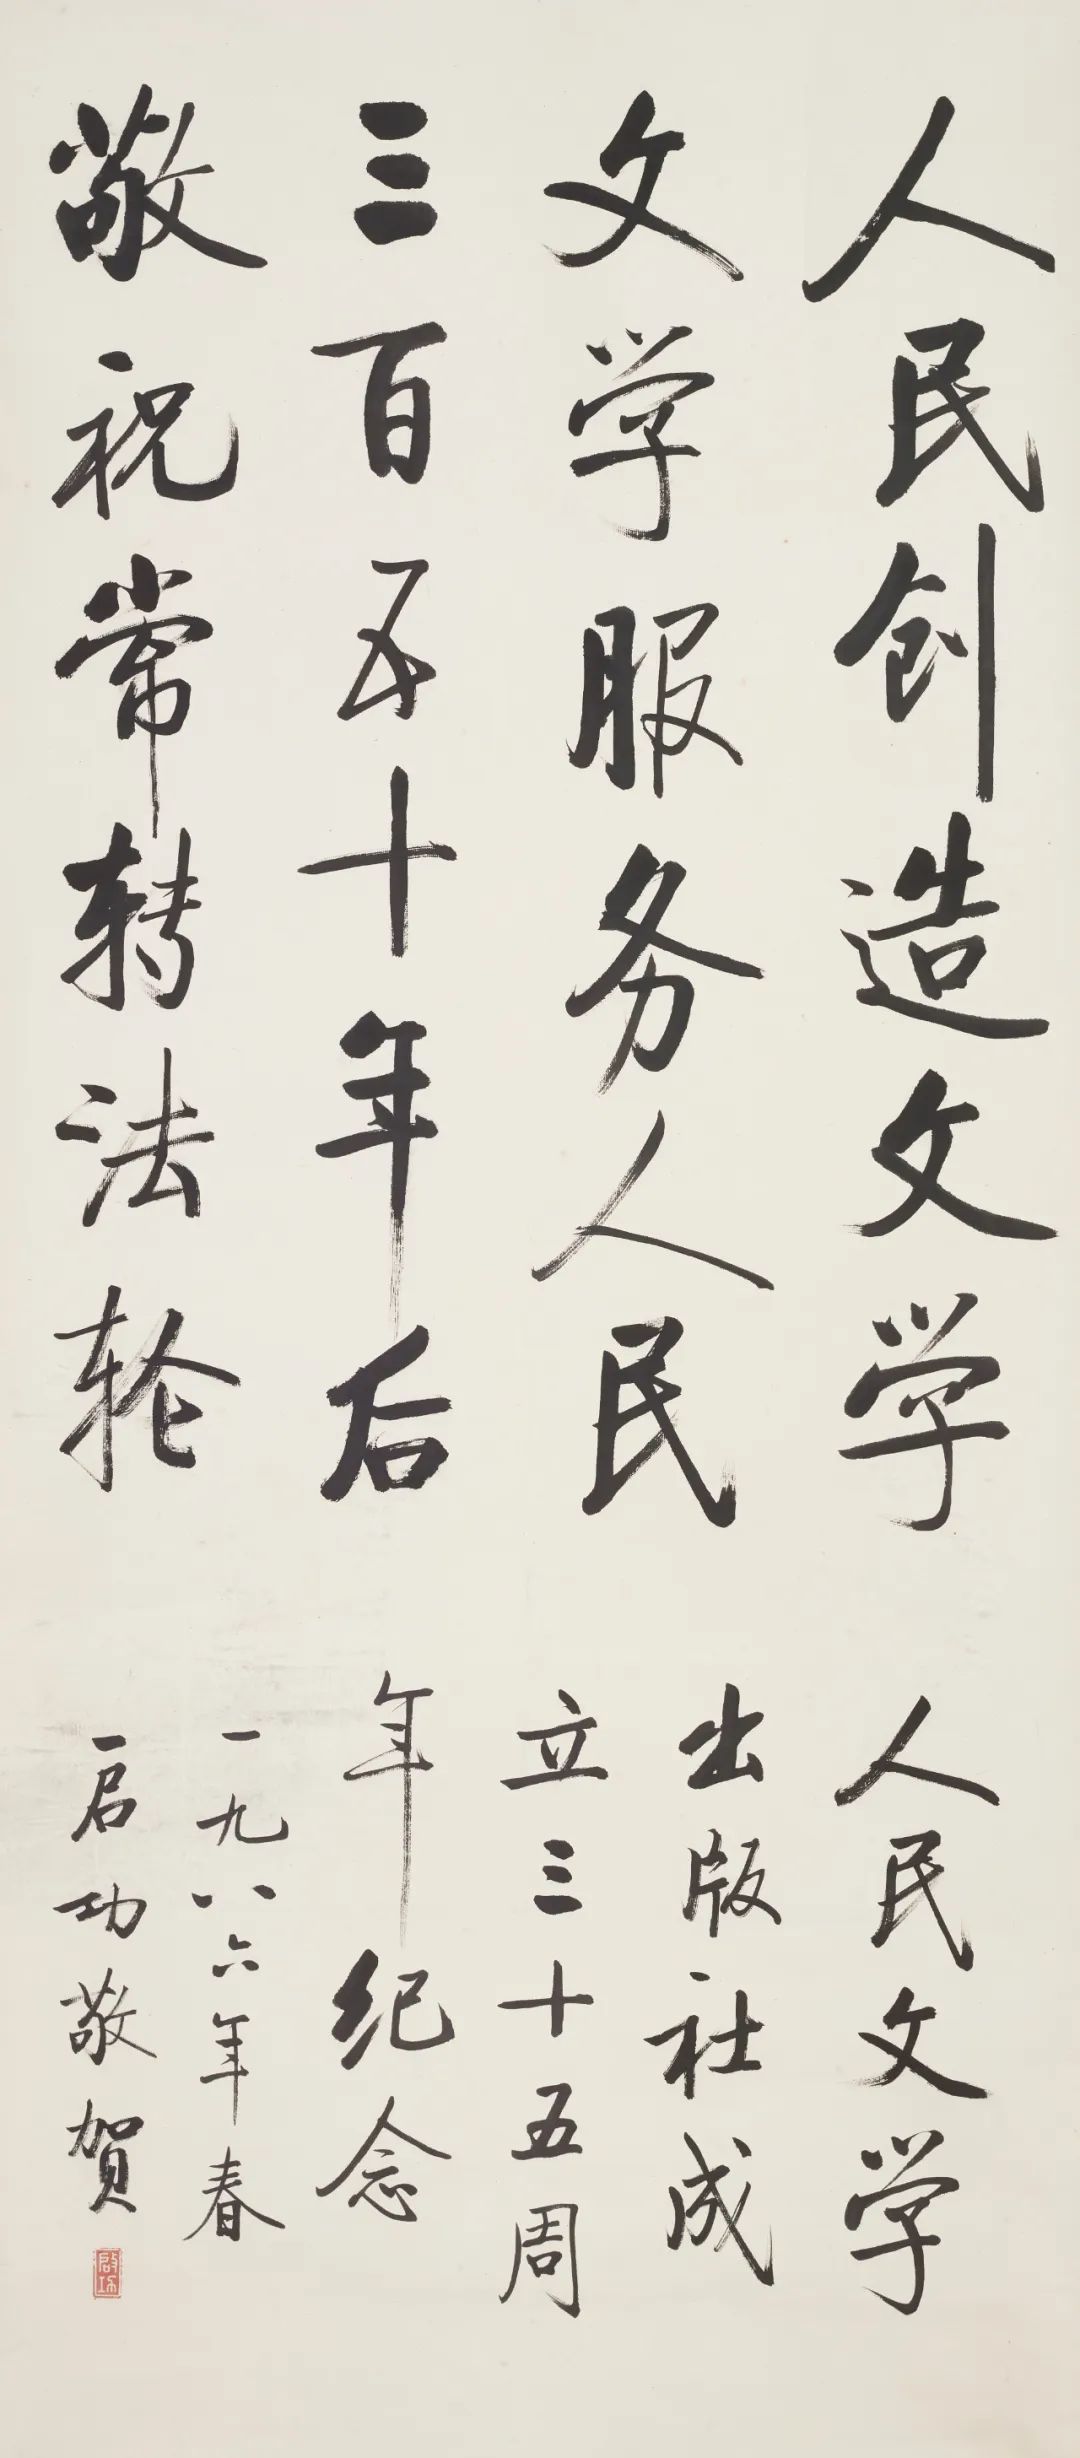 人民创造文学
文学服务人民
三百五十年后
敬祝常转法轮
人民文学
出版社成
立三十五周
年纪念
一九八六年春
启功敬贺
啟功